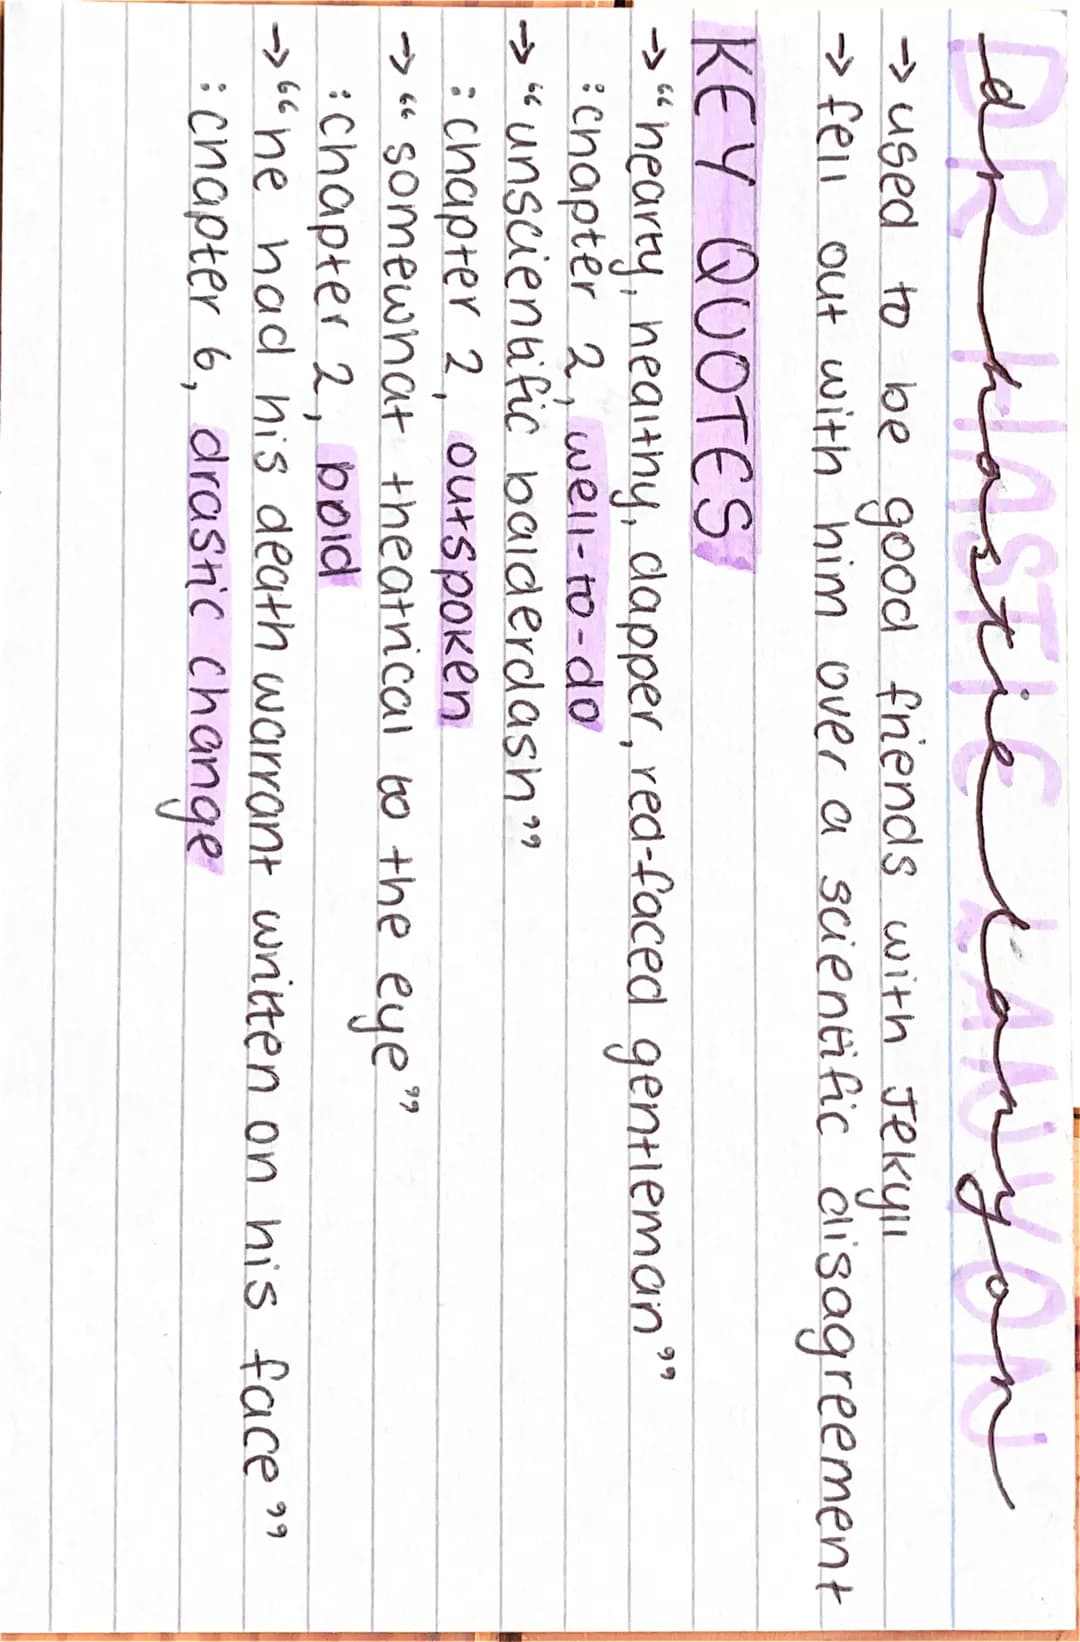 DR HASTIE LANYON
dr hastie lanyon
→ used to be good friends with Jekyll
→ fell out with him over a scientific disagreement
KEY QUOTES
→ “hearty, healthy, dapper, red-faced gentleman”
: chapter 2, well-to-do
→ “unscientific balderdash”
: chapter 2, outspoken
→ “somewhat theatrical to the eye”
: chapter 2, bold
→ “he had his death warrant written on his face”
: chapter 6, drastic change